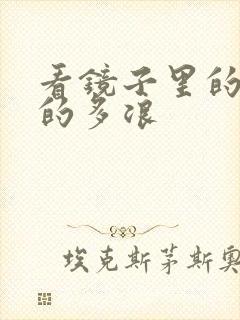 看镜子里的
的多浪
埃克斯茅斯奥